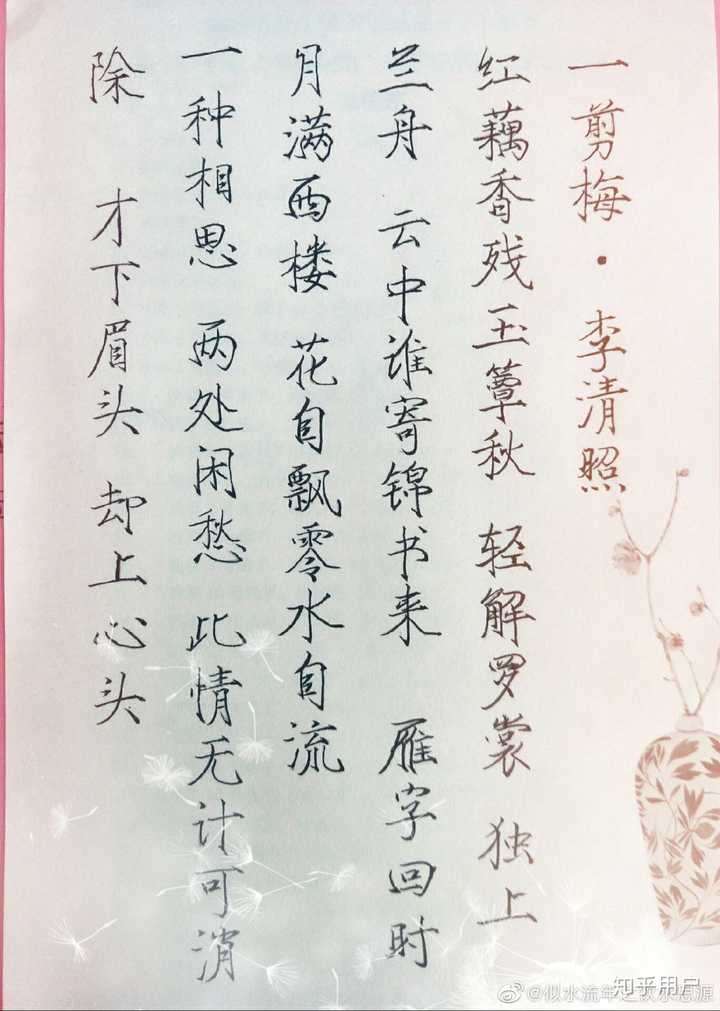 一剪梅·李清照
红藕香残玉簟秋 轻解罗裳 独上
兰舟 云中谁寄锦书来 雁字回时
月满西楼 花自飘零水自流
一种相思 两处闲愁 此情无计可消
除 才下眉头 却上心头
知乎用户